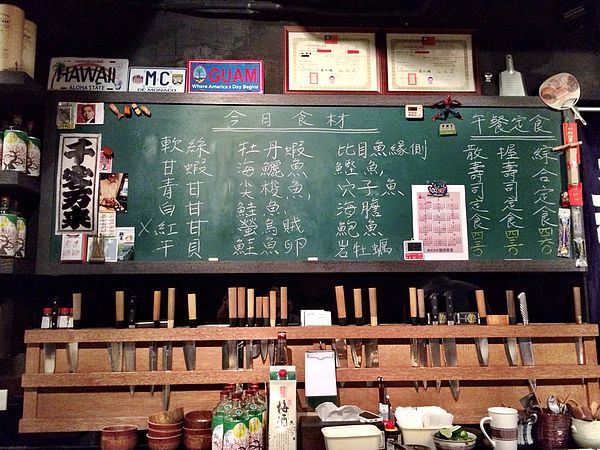 HAWAII
ALOHA STATE
MC
DE MONACO
GUAM
Where America's Day Begins
千客万来
今日食材
軟絲 牡丹蝦 比目魚緣側
甘蝦 海鱺魚 鰹魚
青甘 尖梭魚 穴子魚
白甘 鮭魚 海膽
X紅甘 螢烏賊 鮑魚
干貝 鮭魚卵 岩牡蠣
午餐定食
綜合定食 460
握壽司定食 430
散壽司定食 430
梅酒